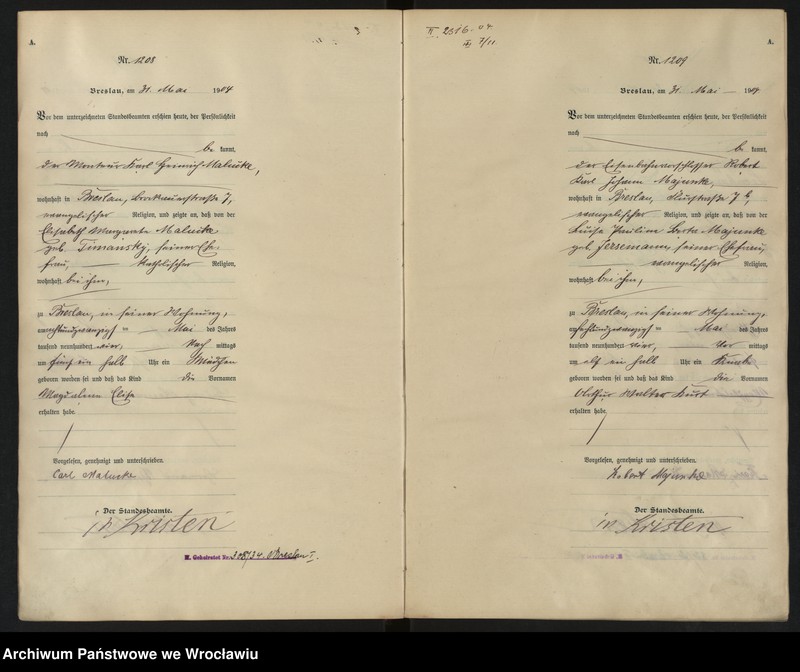 A.
Nr. 1208
Breslau, am 31. Mai 1904
Vor dem unterzeichneten Standesbeamten erschien heute, der Persönlichkeit
nach
be kannt,
der Monteur Karl Heinrich Malucka,
wohnhaft in Breslau, Brockauerstraße 7,
evangelischer Religion, und zeigte an, daß von der
Elisabeth Margarete Malucka
geb. Timansky, seiner Ehe-
frau, katholischer Religion,
wohnhaft bei ihm,
zu Breslau, in seiner Wohnung,
am achtundzwanzigsten Mai des Jahres
tausend neunhundert vier, Nach mittags
um fünf ein halb Uhr ein Mädchen
geboren worden sei und daß das Kind die Vornamen
Magdalena Elisa
erhalten habe.
Vorgelesen, genehmigt und unterschrieben.
Carl Malucka
Der Standesbeamte.
In Kristen
H. Geheiratet Nr. 308/34. Breslau I.
II. 2316. 04.
III 7/11
A.
Nr. 1209
Breslau, am 31. Mai 1904
Vor dem unterzeichneten Standesbeamten erschien heute, der Persönlichkeit
nach
be kannt,
der Eisenbahnvorschlosser Robert
Karl Johann Majunke,
wohnhaft in Breslau,
evangelischer Religion, und zeigte an, daß von der
Pauline Berta Majunke
geb. Jersemann, seiner Ehefrau,
evangelischer Religion,
wohnhaft bei ihm,
zu Breslau, in seiner Wohnung,
am achtundzwanzigsten Mai des Jahres
tausend neunhundert vier, Vor mittags
um elf ein halb Uhr ein Knabe
geboren worden sei und daß das Kind die Vornamen
Arthur Walter Kurt
erhalten habe.
Vorgelesen, genehmigt und unterschrieben.
Robert Majunke
Der Standesbeamte.
In Kristen
Archiwum Państwowe we Wrocławiu